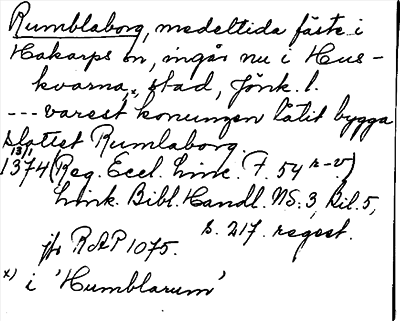 Rumblaborg, medeltida fäste i
Hakarps sn, ingår nu i Hus-
kvarna x) stad, Jönk. l.
--- varest konungen låtit bygga
slottet Rumlaborg.
13/1
1374 (Reg. Eccl. Linc. F. 54 r-v)
Link. Bibl. Handl. NS. 3, Bil. 5,
s. 217. regest.
jfr RAP 1075.
x) i 'Humblarum'